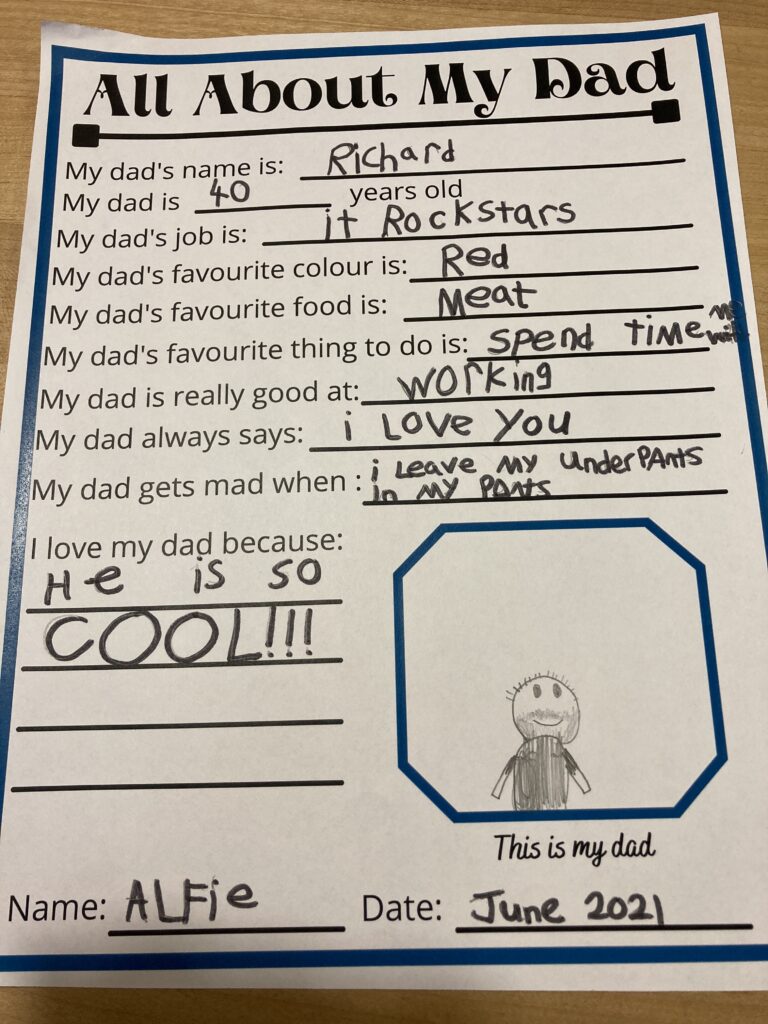 All About My Dad
My dad's name is: Richard
My dad is 40 years old
My dad's job is: it Rockstars
My dad's favourite colour is: Red
My dad's favourite food is: Meat
My dad's favourite thing to do is: spend time me with
My dad is really good at: working
My dad always says: i Love you
My dad gets mad when : i Leave my underpants
in my pants
I love my dad because:
He is so
COOL!!!
This is my dad
Name: ALFie Date: June 2021